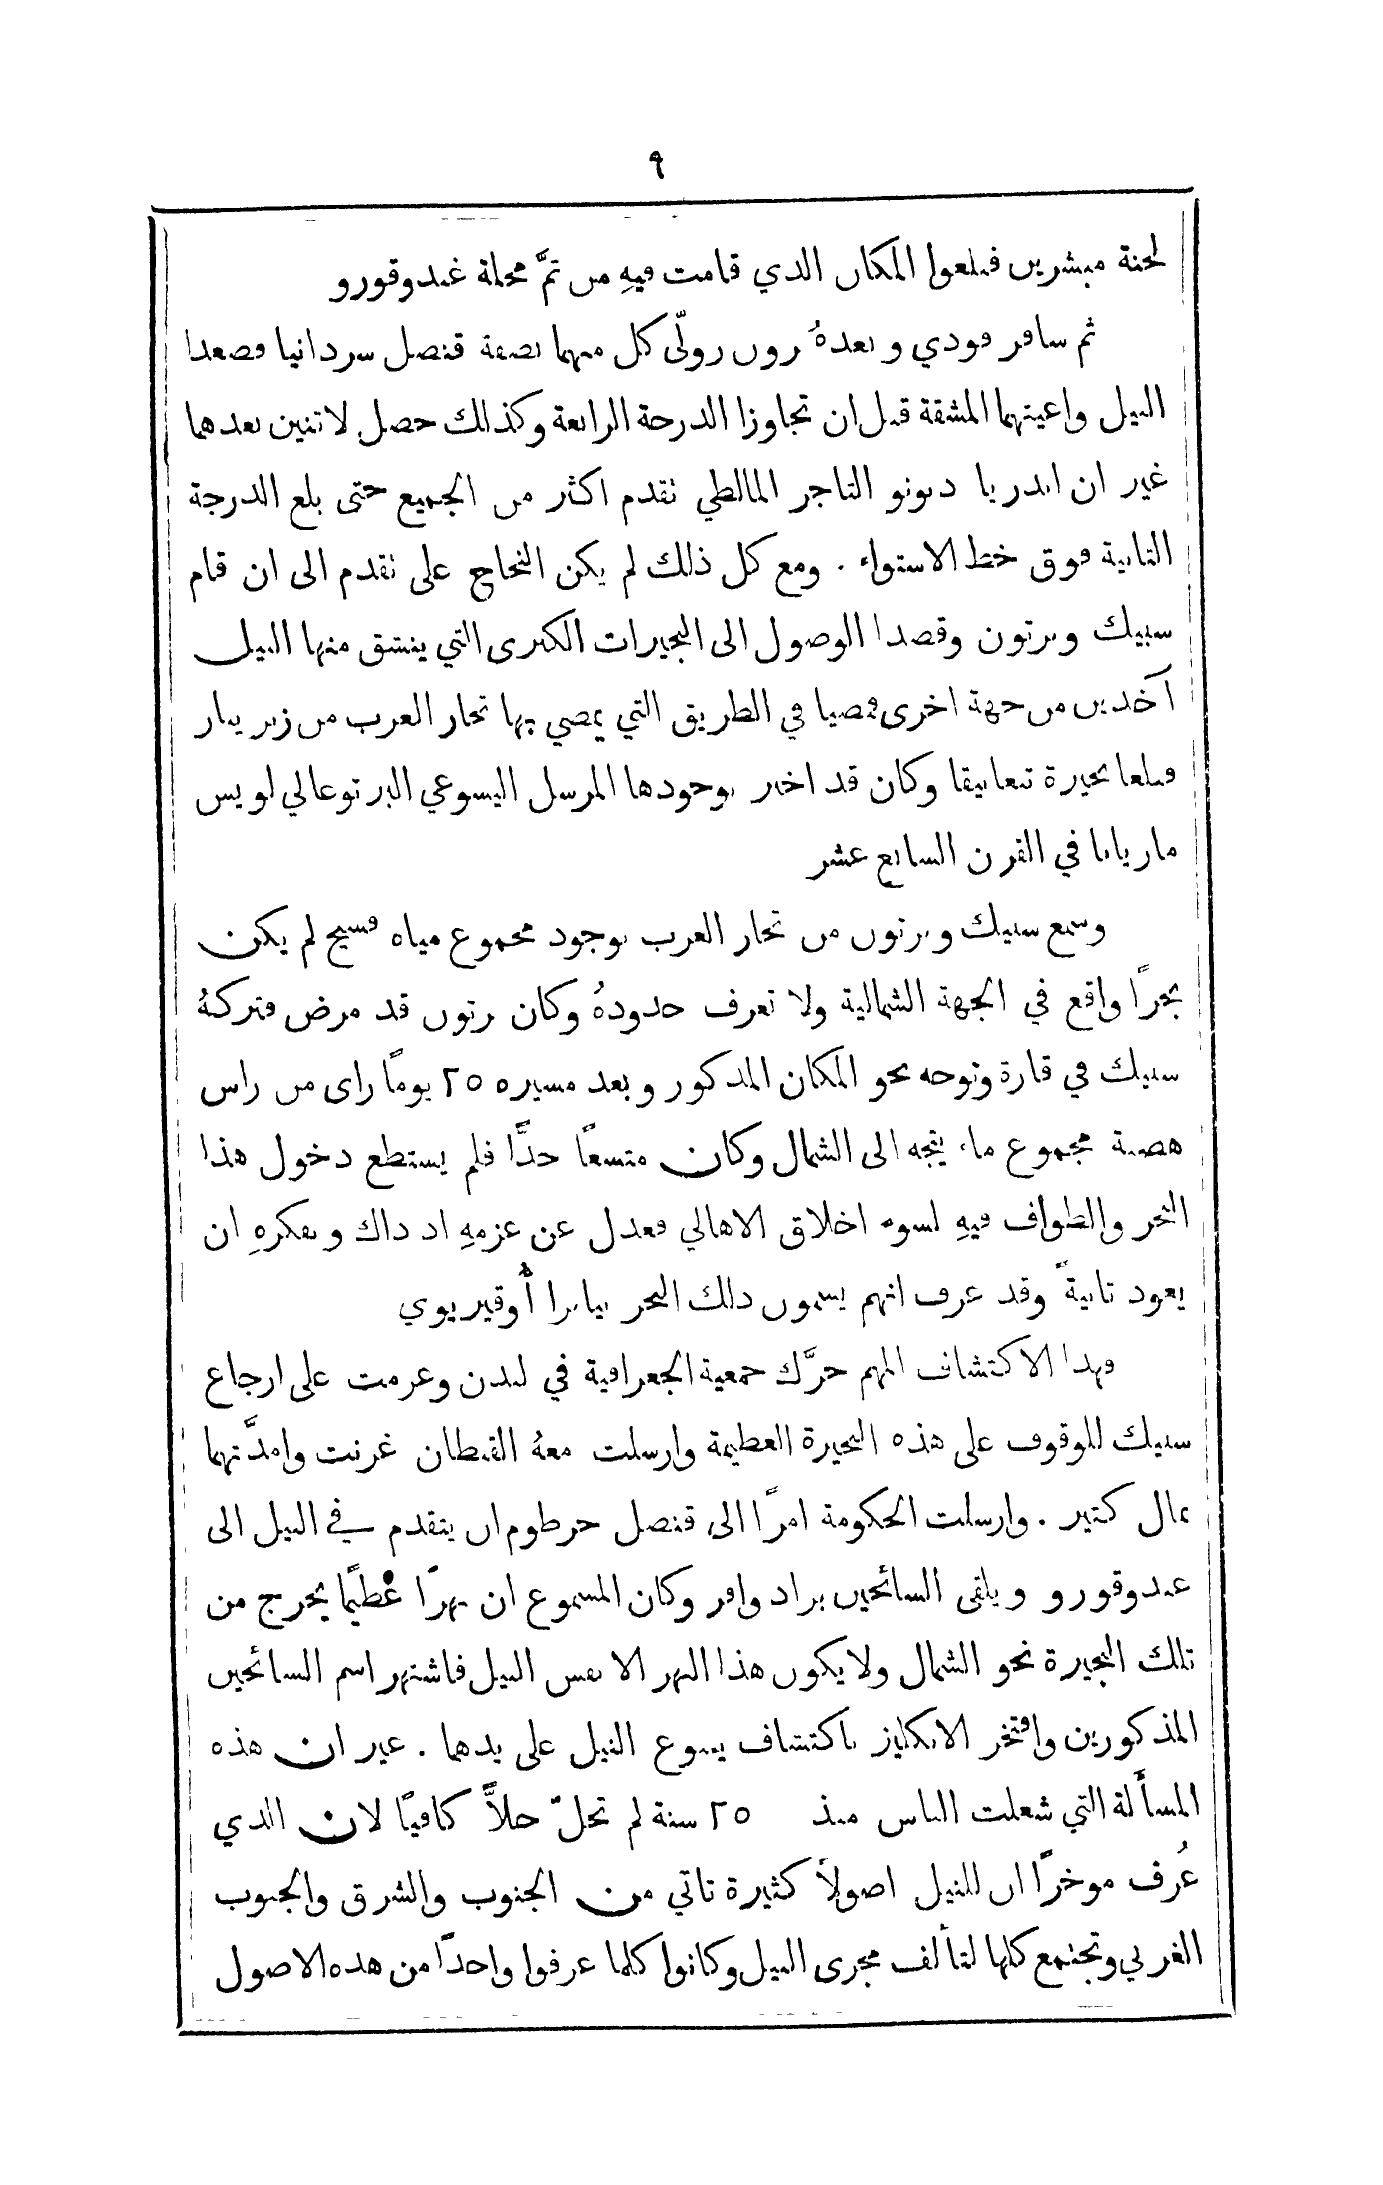 ٩
لجنة مبشرين فبلغوا المكان الذي قامت فيهِ من ثمَّ محلة غندوقورو
ثم سافر فودي وبعدهُ رون رولّى كل منهما بصفة قنصل سردانيا فصعدا
النيل واعيتهما المشقة قبل ان تجاوزا الدرجة الرابعة وكذلك حصل لاثنين بعدهما
غير ان اندريا ديبونو التاجر المالطي تقدم اكثر من الجميع حتى بلغ الدرجة
الثانية فوق خط الاستواء . ومع كل ذلك لم يكن النجاح على تقدم الى ان قام
سبيك وبرتون وقصدا الوصول الى البحيرات الكبرى التي ينشق منها النيل
آخذين من جهة اخرى فمضيا في الطريق التي يمضي بها تجار العرب من زنزيبار
فبلغا بحيرة تنغانيقا وكان قد اخبر بوجودها المرسل اليسوعي البرتوغالي لويس
ماريانا في القرن السابع عشر
وسمع سبيك وبرتون من تجار العرب بوجود مجموع مياه فسيح لم يكن
بحرًا واقع في الجهة الشمالية ولا تعرف حدودهُ وكان برتون قد مرض فتركهُ
سبيك في قارة وتوجه نحو المكان المذكور وبعد مسيره ٢٥ يومًا راى من راس
هضبة مجموع ماء يتجه الى الشمال وكان متسعًا جدًّا فلم يستطع دخول هذا
البحر والطواف فيهِ لسوء اخلاق الاهالي فعدل عن عزمهِ اذ ذاك وبفكرهِ ان
يعود ثانيةً وقد عرف انهم يسمون ذلك البحر نيانزا أُوقيريوي
فهذا الاكتشاف المهم حرَّك جمعية الجغرافية في لندن وعزمت على ارجاع
سبيك للوقوف على هذه البحيرة العظيمة وارسلت معهُ القبطان غرنت وامدَّتهما
بمال كثير . وارسلت الحكومة امرًا الى قنصل خرطوم ان يتقدم في النيل الى
غندوقورو ويلقى السائحين بزاد وافر وكان المسموع ان نهرًا عظيمًا يخرج من
تلك البحيرة نحو الشمال ولا يكون هذا النهر الا نفس النيل فاشتهر اسم السائحين
المذكورين وافتخر الانكليز باكتشاف ينبوع النيل على يدهما . غير ان هذه
المسأَلة التي شغلت الناس منذ ٢٥ سنة لم تحلّ حلاًّ كافيًا لان الذي
عُرف موخرًا ان للنيل اصولاً كثيرة تاتي من الجنوب والشرق والجنوب
الغربي وتجتمع كلها لتأَلف مجرى النيل وكانوا كلما عرفوا واحدًا من هذه الاصول